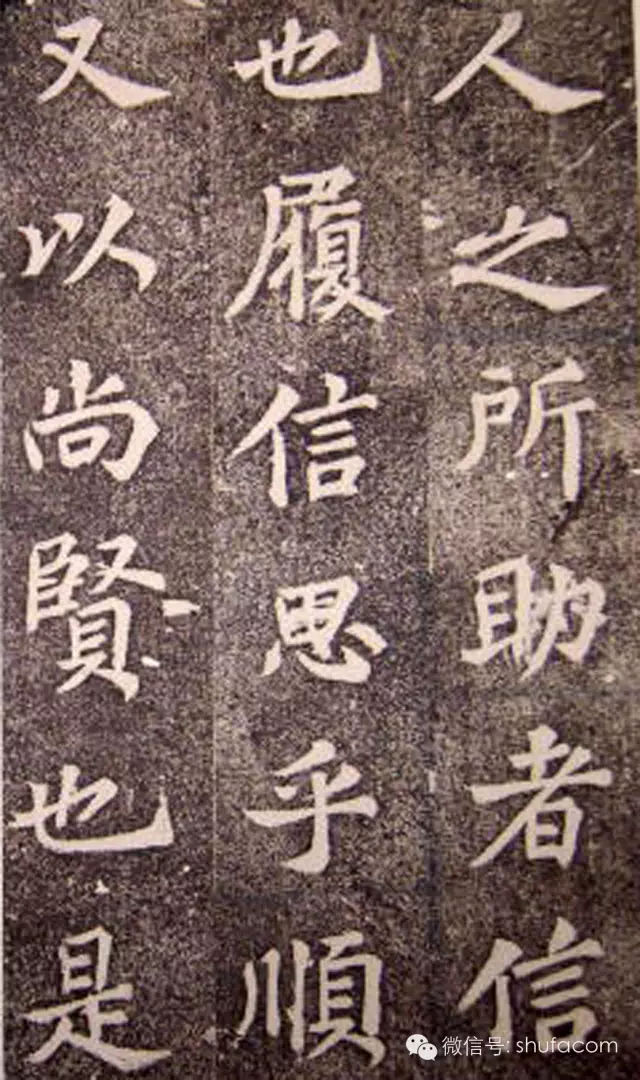 人之所助者信
也履信思乎順
又以尚賢也是
微信号: shufacom